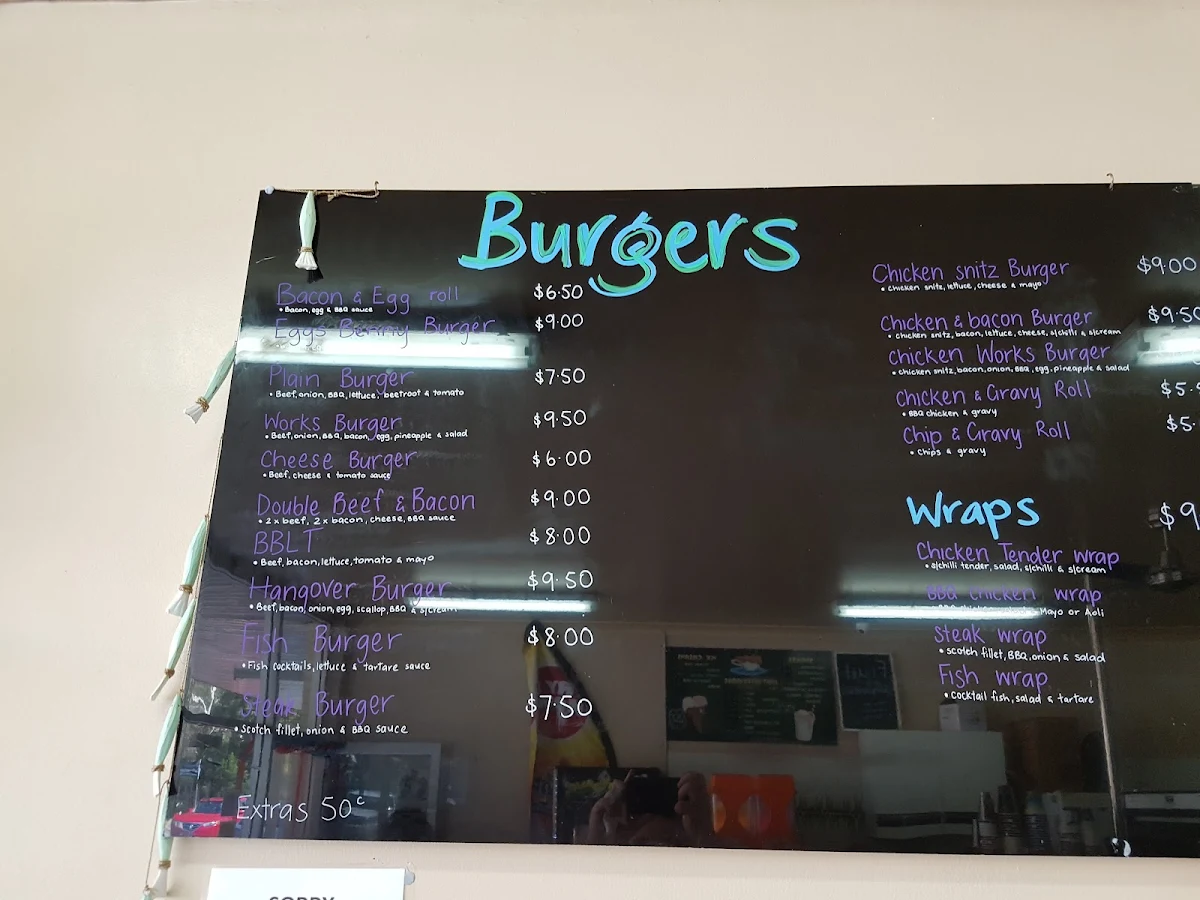 Burgers
Bacon & Egg roll $6.50
• Bacon, egg & BBQ sauce
Eggs Benny Burger $9.00
Plain Burger $7.50
• Beef, onion, BBQ, lettuce, beetroot & tomato
Works Burger $9.50
• Beef, onion, BBQ, bacon, egg, pineapple & salad
Cheese Burger $6.00
• Beef, cheese & tomato sauce
Double Beef & Bacon $9.00
• 2 x beef, 2 x bacon, cheese, BBQ sauce
BBLT $8.00
• Beef, bacon, lettuce, tomato & mayo
Hangover Burger $9.50
• Beef, bacon, onion, egg, scallop, BBQ & s/cream
Fish Burger $8.00
• Fish cocktails, lettuce & tartare sauce
Steak Burger $7.50
• Scotch fillet, onion & BBQ sauce
Extras 50c
Chicken snitz Burger $9.00
• chicken snitz, lettuce, cheese & mayo
Chicken & bacon Burger $9.50
• chicken snitz, bacon, lettuce, cheese, s/chilli & s/cream
chicken Works Burger
• chicken snitz, bacon, onion, BBQ, egg, pineapple & salad
Chicken & Gravy Roll $5.
• BBQ chicken & gravy
Chip & Gravy Roll $5.
• chips & gravy
Wraps $9
Chicken Tender wrap
• s/chilli tender, salad, s/chilli & s/cream
BBQ chicken wrap
Mayo or Aoli
steak wrap
• scotch fillet, BBQ, onion & salad
Fish wrap
• cocktail fish, salad & tartare
SORRY